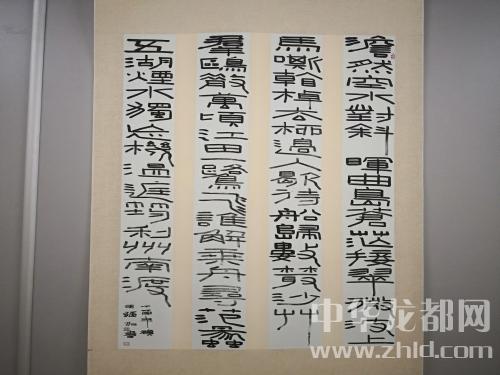 澹然空水對斜暉曲島蒼茫接翠微波上
馬嘶看棹去柳邊人歇待船歸數叢沙艸
羣鷗散萬頃江田一鷺飛誰解乘舟尋范蠡
五湖煙水獨忘機温庭筠利州南渡
中华龙都网
www.zhld.com